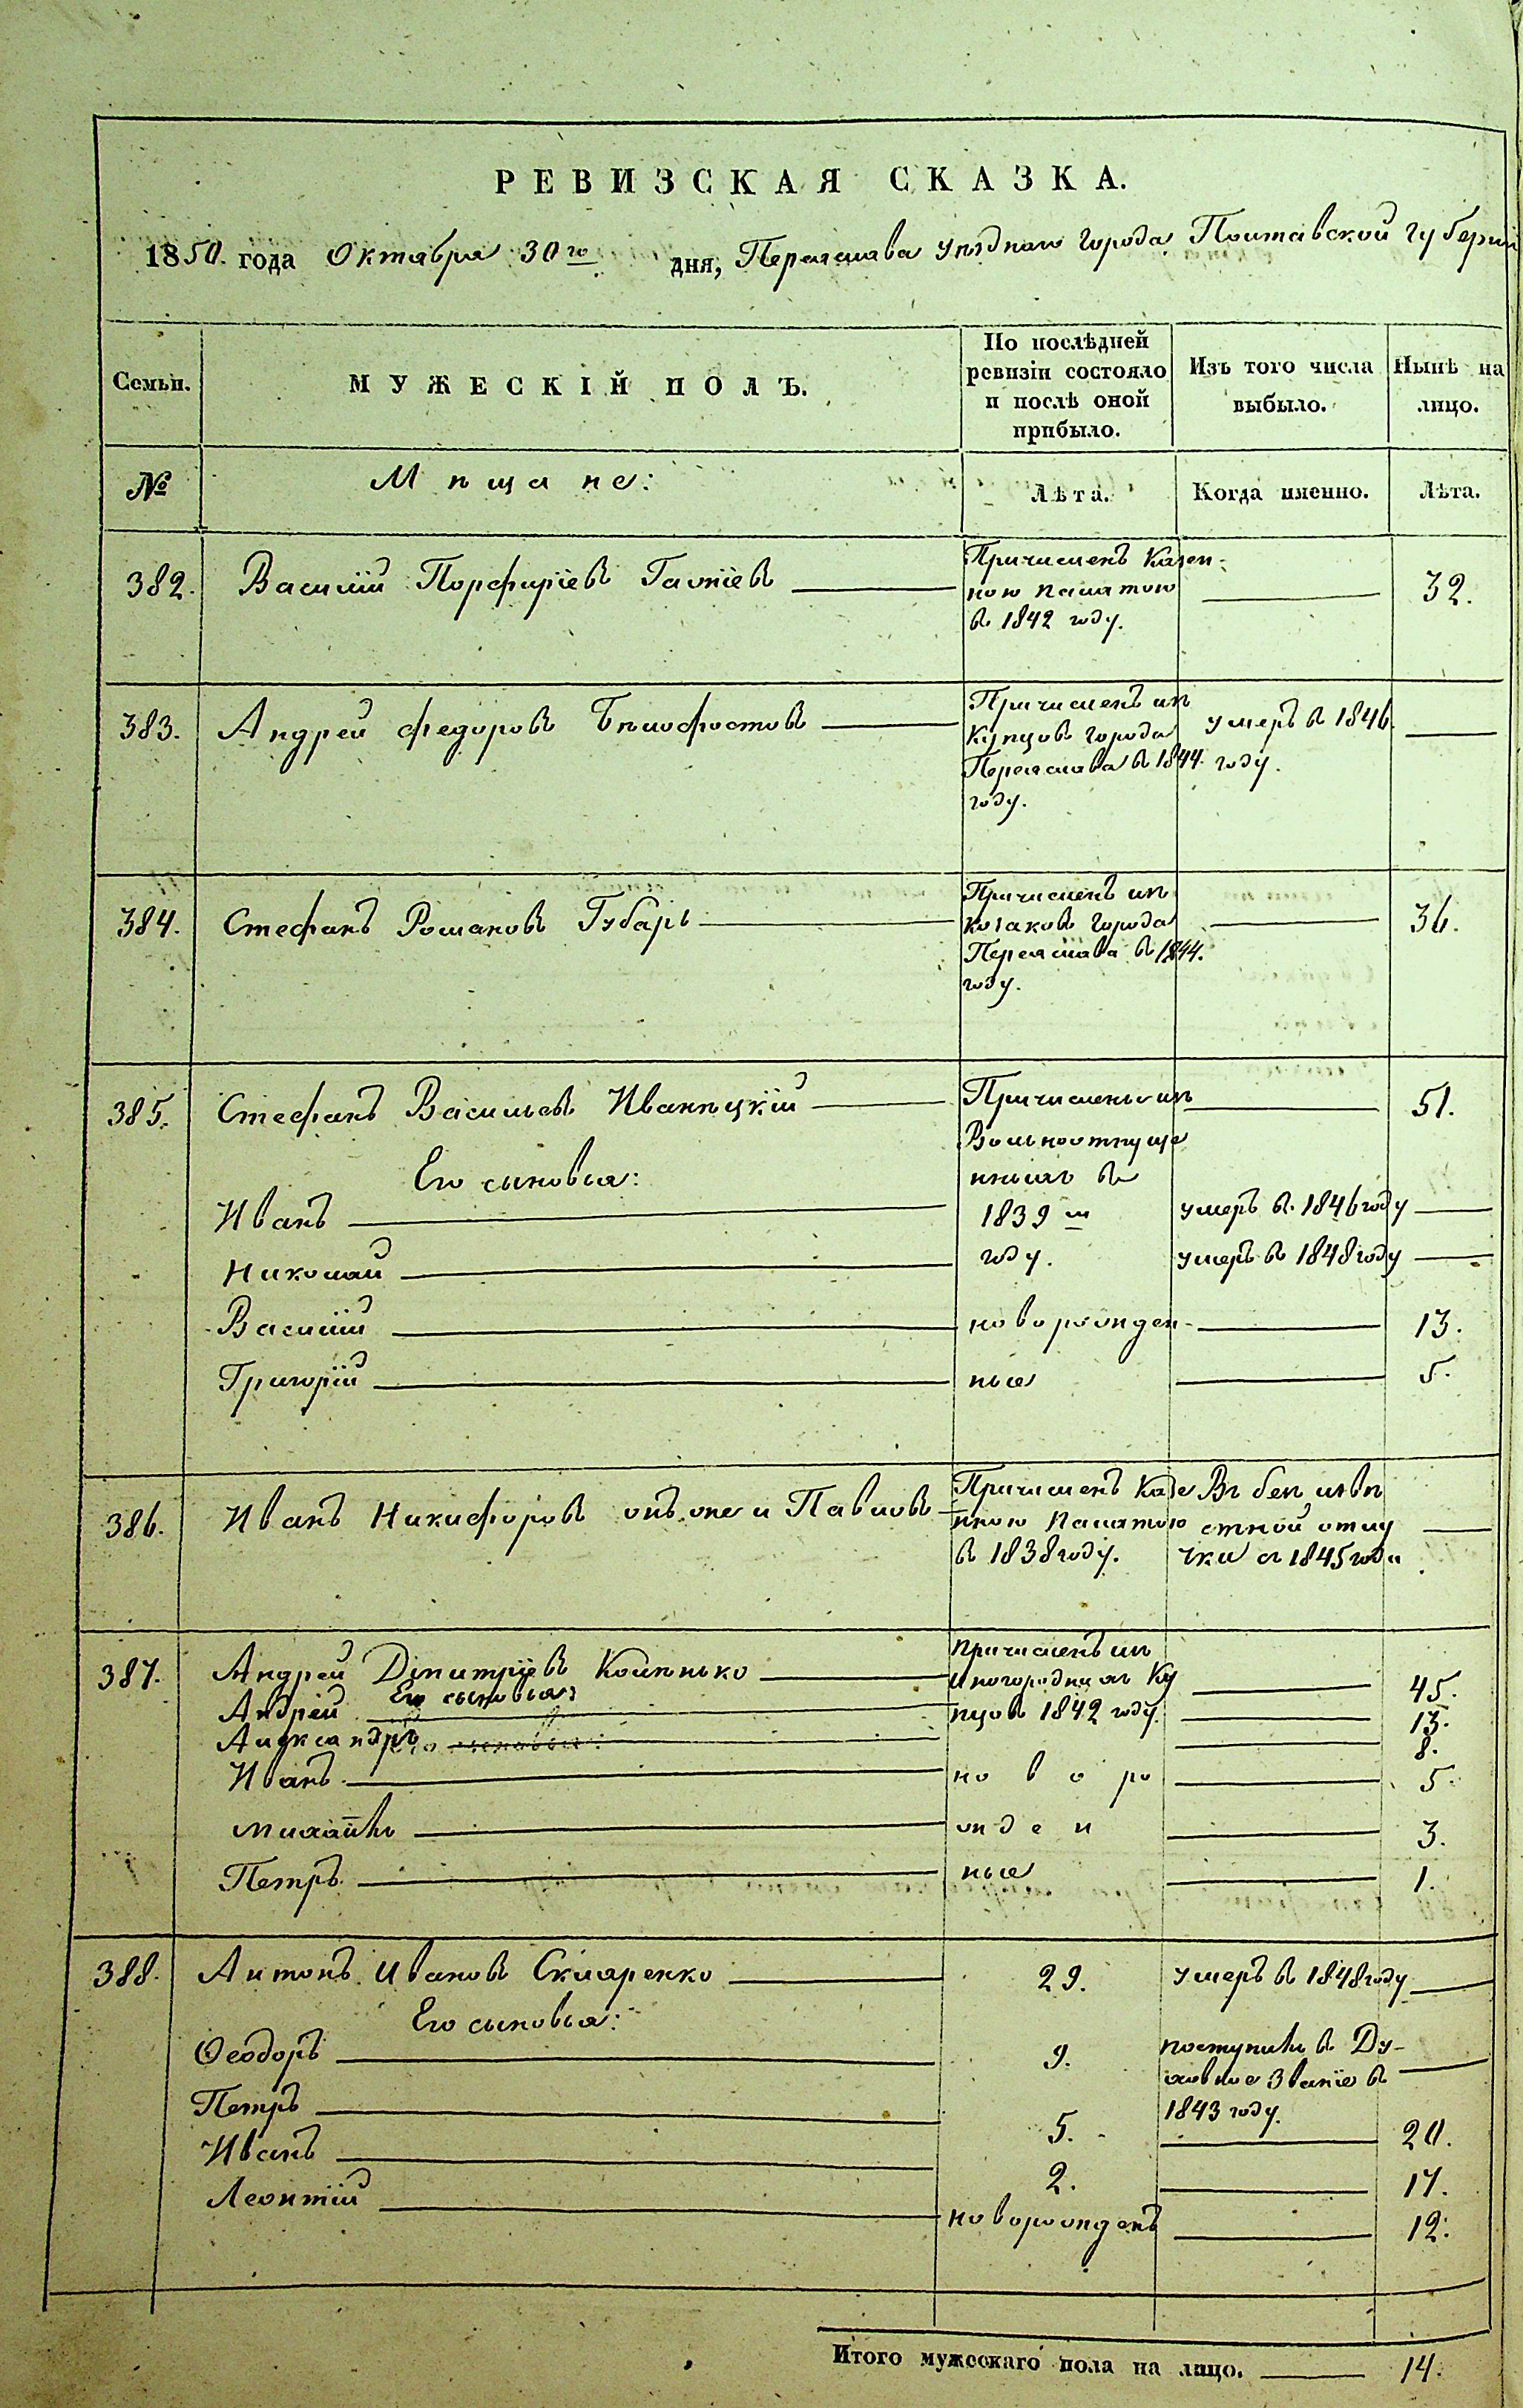 РЕВИЗСКАЯ СКАЗКА.
1850. года Октября 30го дня, Переяслава уѣзднаго города Полтавской губерніи
Семьи. МУЖЕСКІЙ ПОЛЪ. По послѣдней ревизіи состояло и послѣ оной прибыло. Изъ того числа выбыло. Нынѣ на лицо.
№ Мѣщане: Лѣта. Когда именно. Лѣта.
382. Василій Порфиріевъ Причисленъ Казен- 32.
ною палатою
въ 1842 году.
383. Андрей Федоровъ Бѣлофостовъ Причисленъ изъ умеръ въ 1846.
купцовъ города году.
Переяслава въ 1844.
году.
384. Стефанъ Романовъ Губарь Причисленъ изъ 36.
козаковъ города
Переяслава въ 1844.
году.
385. Стефанъ Васильевъ Иваницкій Причислены изъ 51.
Вольноотпуще
Его сыновья: нныхъ въ
Иванъ 1839 м умеръ въ 1846 году
Николай году. умеръ въ 1848 году
Василій новорожден- 13.
Григорій ные 5.
386. Иванъ Никифоровъ онъ же и Павловъ Причисленъ Казе Въ безъизвѣ
нною палатою стной отлу
въ 1838 году. чки съ 1845 года
387. Андрей Дмитріевъ Причисленъ изъ 45.
Его сыновья: Иногородныхъ Ку
Андрей пцовъ 1842 году. 13.
Александръ 8.
Иванъ новоро 5.
Михаилъ жден 3.
Петръ ные 1.
388. Антонъ Ивановъ Скляренко 29. умеръ въ 1848 году
Его сыновья:
Феодоръ 9. поступилъ въ Ду-
ховное Званіе въ
1843 году.
Петръ 5. 20.
Иванъ 2. 17.
Леонтій новорожденъ 12.
Итого мужескаго пола на лицо. 14.